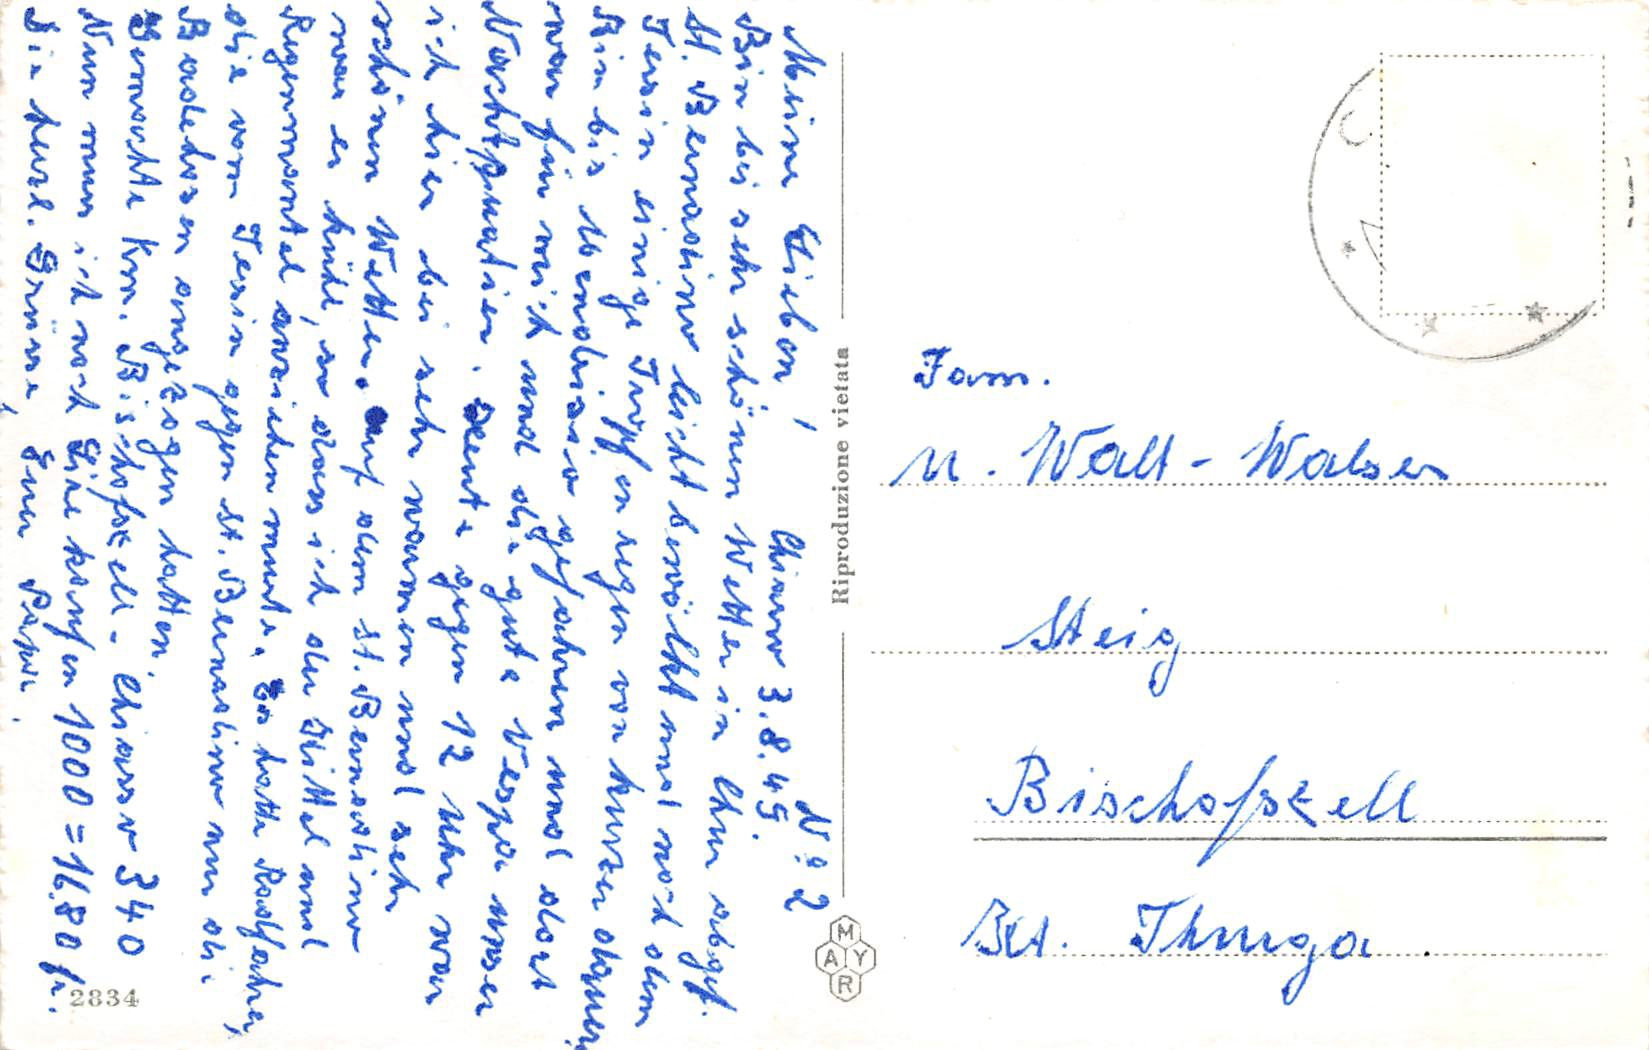 Nº 2
Meine Lieben! Chiasso 3.8.49.
Bin bei sehr schönem Wetter in Chur abgef.
St. Bernardino leicht bewölkt und nach dem
Tessin einige Tropfen regen von kurzer dauer,
Bin bis Mendrisio gefahren und dort
war für mich und die gute Vespa unser
Nachtquatier. Heute gegen 12 Uhr war
ich hier bei sehr warmen und sehr
schönem Wetter. Auf dem St. Bernardino
war er kühl, so dass ich den Kittel und
Regenmantel anziehen musste. Es hatte Radfahrer
die vom Tessin gegen St. Bernardino nur die
Badehosen angezogen hatten.
Gemachte Km. Bischofszell - Chiasso 340
Nun muss ich noch Lire kaufen 1000 = 16.80 fr.
Die herzl. Grüsse, Euer Papi.
2834
Riproduzione vietata
MAYR
Fam.
U. Walt-Walser
Steig
Bischofszell
Kt. Thurga